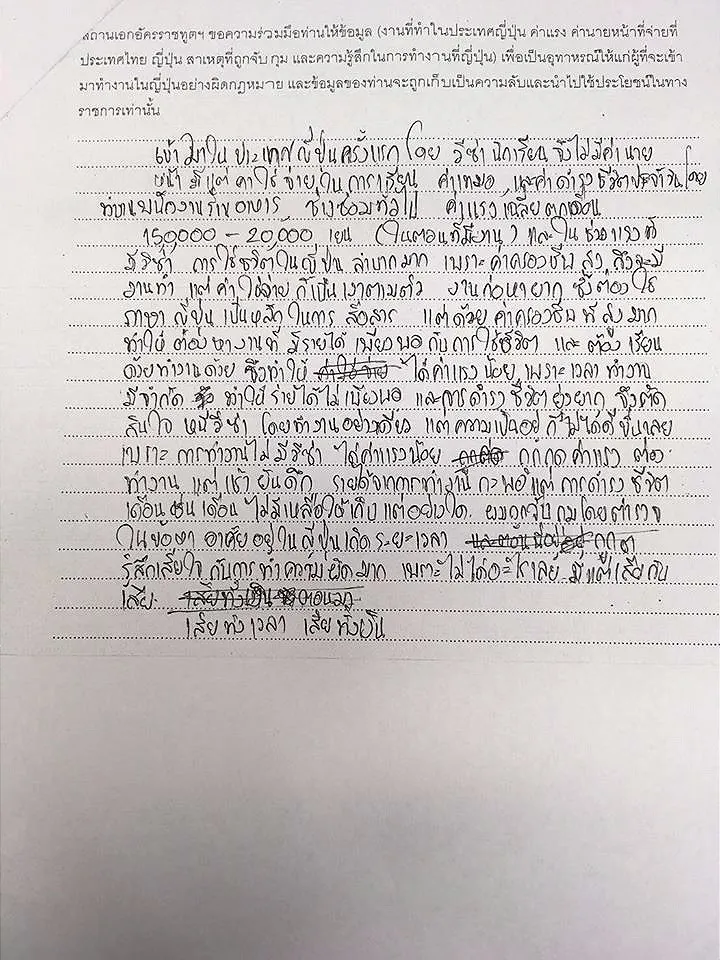 สถานเอกอัครราชทูตฯ ขอความร่วมมือท่านให้ข้อมูล (งานที่ทำในประเทศญี่ปุ่น ค่าแรง ค่านายหน้าที่จ่ายที่
ประเทศไทย ญี่ปุ่น สาเหตุที่ถูกจับ กุม และความรู้สึกในการทำงานที่ญี่ปุ่น) เพื่อเป็นอุทาหรณ์ให้แก่ผู้ที่จะเข้า
มาทำงานในญี่ปุ่นอย่างผิดกฎหมาย และข้อมูลของท่านจะถูกเก็บเป็นความลับและนำไปใช้ประโยชน์ในทาง
ราชการเท่านั้น
เข้ามาในประเทศญี่ปุ่นครั้งแรก โดย วีซ่านักเรียน ซึ่งไม่มีค่านาย
หน้า มีแต่ค่าใช้จ่ายในการเรียน ค่าเทมอ และค่าดำรงชีวิตประจำวัน โดย
ทำงานพนักงานร้านอาหาร ช่างซ่อมทั่วไป ค่าแรงเฉลี่ยตกเดือน
150,000 - 20,000 เยน (ในตอนที่มีงาน) และในช่วงแรงที่
มีวีซ่า การใช้ชีวิตในญี่ปุ่นลำบากมาก เพราะค่าครองชีพสูง ถึงจะมี
งานทำ แต่ค่าใช้จ่ายก็เป็นเงาตามตัว งานก็หายาก ซึ่งต้องใช้
ภาษาญี่ปุ่นเป็นหลักในการสื่อสาร แต่ด้วยค่าครองชีพที่สูงมาก
ทำให้ต้องหางานที่มีรายได้เพียงพอกับการใช้ชีวิต และต้องเรียน
ด้วยทำงานด้วย ซึ่งทำให้ ค่าใช้จ่าย ได้ค่าแรงน้อย เพราะเวลาทำงาน
มีจำกัด ทำให้รายได้ไม่เพียงพอ และการดำรงชีวิตยุ่งยาก จึงตัด
สินใจ หนีวีซ่า โดยทำงานอย่างเดียว แต่ความเป็นอยู่ก็ไม่ได้ดีขึ้นเลย
เพราะการทำงานไม่มีวีซ่า ได้ค่าแรงน้อย ถูกกดค่าแรง ต้อง
ทำงานแต่เช้ายันดึก รายได้จากการทำงานก็กะพอแต่การดำรงชีวิต
เดือนชนเดือน ไม่มีเหลือให้เก็บแต่อย่างใด ผมถูกจับกุมโดยตำรวจ
ในข้อหา อาศัยอยู่ในญี่ปุ่นเกิดระยะเวลา
รู้สึกเสียใจกับการทำความผิดมาก เพราะไม่ได้อะไรเลย มีแต่เสียกับ
เสีย
เสียทั้งเวลา เสียทั้งเงิน